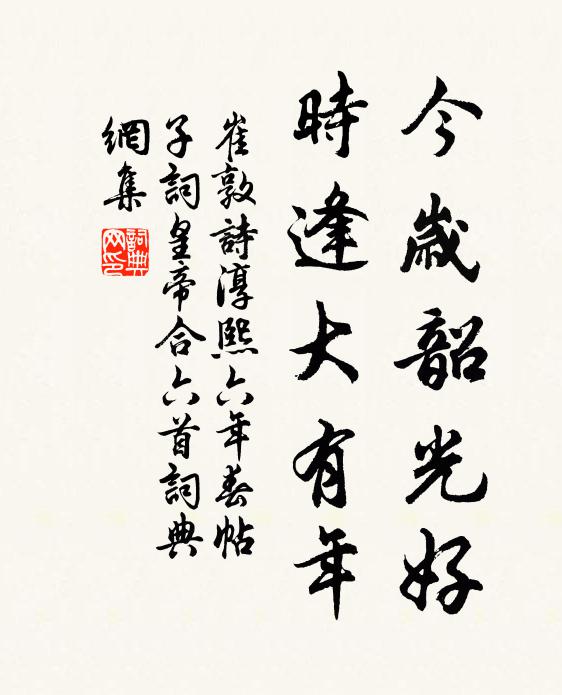 今歲韶光好
時逢大有年
崔敦詩淳熙六年春帖
子詞皇帝合六首詞典
網集
詞典
网印